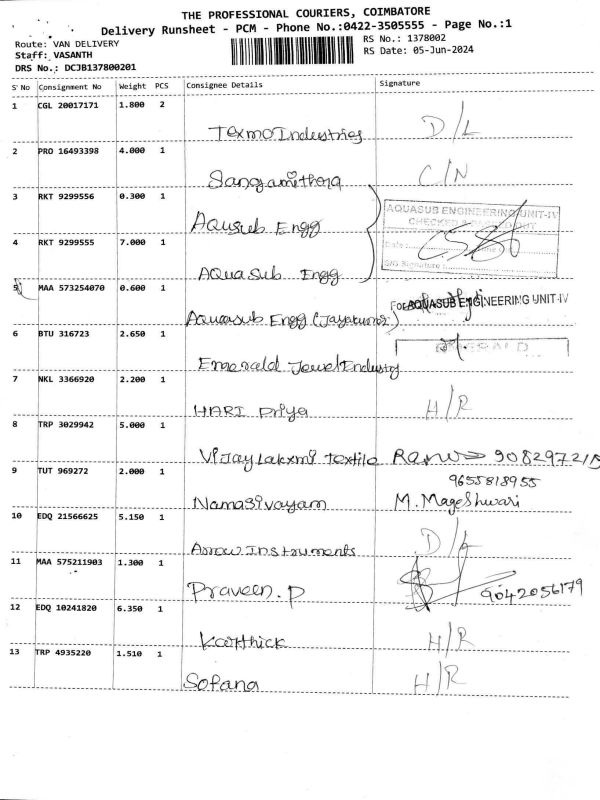 THE PROFESSIONAL COURIERS, COIMBATORE
Delivery Runsheet - PCM - Phone No.:0422-3505555 - Page No.:1
Route: VAN DELIVERY
RS No.: 1378002
Staff: VASANTH
RS Date: 05-Jun-2024
DRS No.: DCJB137800201
S' No Consignment No Weight PCS Consignee Details Signature
1 CGL 20017171 1.800 2
Texmo Industries D/L
2 PRO 16493398 4.000 1
Sangamithera C/N
3 RKT 9299556 0.300 1
Aqusub Engg
AQUASUB ENGINEERING UNIT-IV
4 RKT 9299555 7.000 1
AQua Sub Engg
5 MAA 573254070 0.600 1
For AQUASUB ENGINEERING UNIT-IV
Aquasub Engg (Jayakumar)
6 BTU 316723 2.650 1
Emerald Jewel Endustry
7 NKL 3366920 2.200 1
HARI Priya H/R
8 TRP 3029942 5.000 1
Vijay Lakxmi Textile 908297215
9 TUT 969272 2.000 1
9655818955
Namasivayam M. Mageshwari
10 EDQ 21566625 5.150 1
Arrow Instruments D/L
11 MAA 575211903 1.300 1
Praveen. P 9042056179
12 EDQ 10241820 6.350 1
Karthick H/R
13 TRP 4935220 1.510 1
Sofana H/R